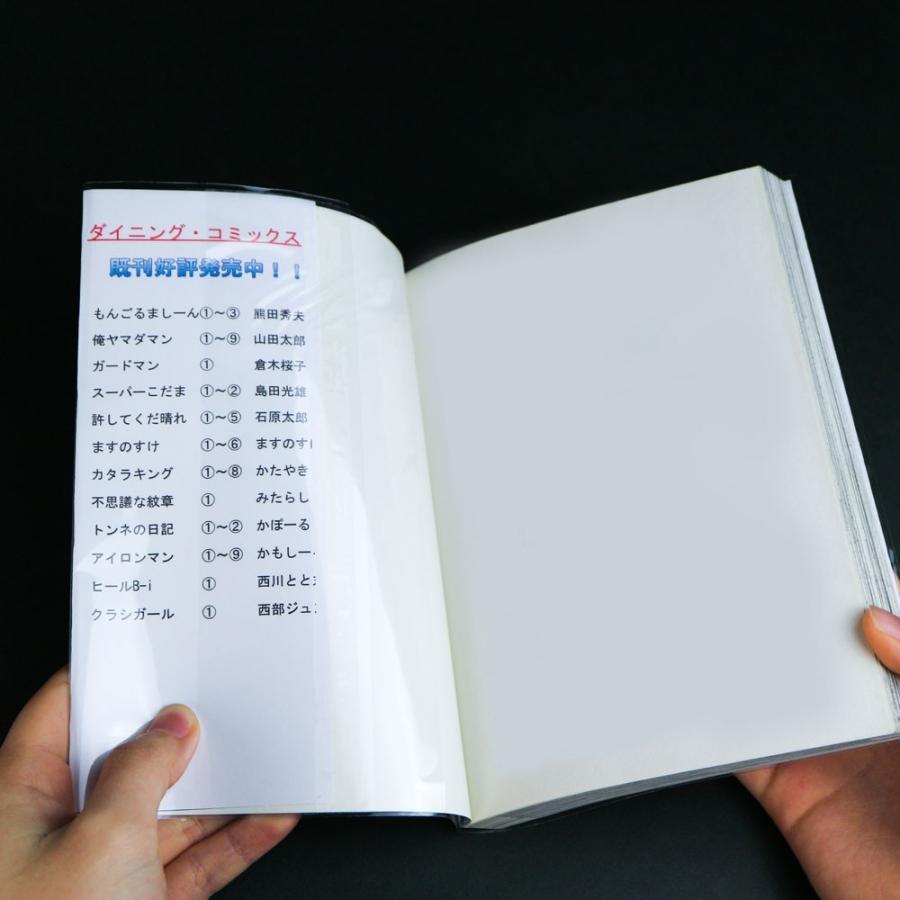 ダイニング・コミックス
既刊好評発売中！！
もんごるましーん①～③ 熊田秀夫
俺ヤマダマン ①～⑨ 山田太郎
ガードマン ① 倉木桜子
スーパーこだま ①～② 島田光雄
許してくだ晴れ ①～⑤ 石原太郎
ますのすけ ①～⑥ ますのすけ
カタラキング ①～⑧ かたやき
不思議な紋章 ① みたらし
トンネの日記 ①～② かぼーる
アイロンマン ①～⑨ かもしー
ヒールB-i ① 西川とと
クラシガール ① 西部ジュ